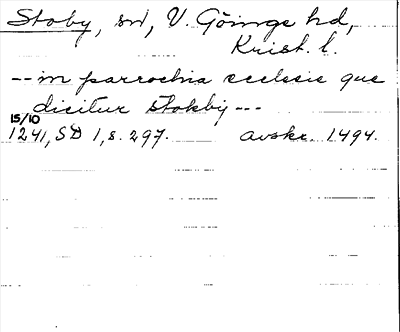 Stoby, sn, V. Göinge hd,
Krist. l.
-- in parrochia ecclesie que
dicitur Stokby ---
15/10
1241, SD 1, s. 297. avskr. 1494.